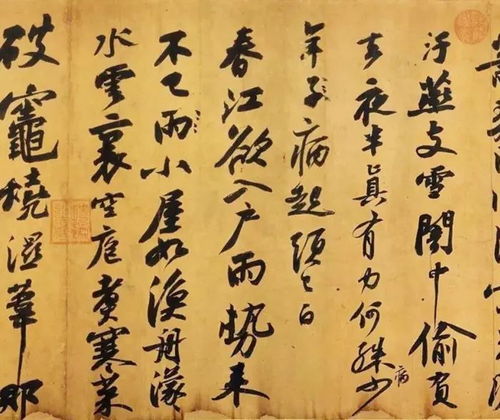 汙燕支雪闇中偷負
去夜半真有力何殊少
病
年子病起須已白
春江欲入戶雨勢來
不已雨小屋如漁舟濛
水雲裏空庖煮寒菜
破竈燒濕葦那